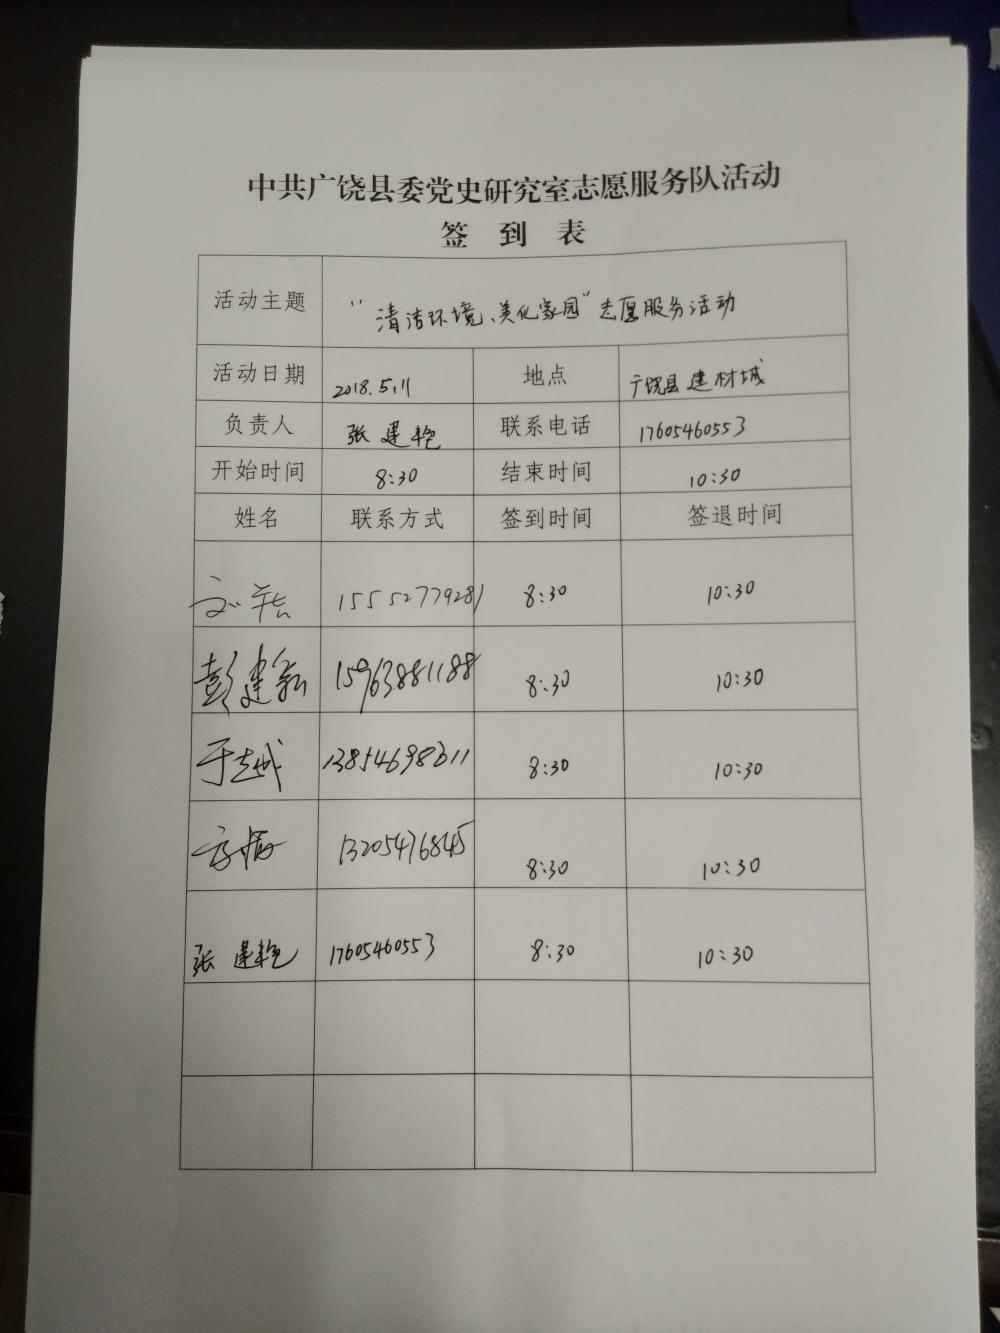 中共广饶县委党史研究室志愿服务队活动
签 到 表
活动主题 “清洁环境、美化家园”志愿服务活动
活动日期 2018.5.11 地点 广饶县建材城
负责人 张建艳 联系电话 17605460553
开始时间 8:30 结束时间 10:30
姓名 联系方式 签到时间 签退时间
15552779281 8:30 10:30
彭建 15963881188 8:30 10:30
于志成 13854698311 8:30 10:30
13205476845 8:30 10:30
张建艳 17605460553 8:30 10:30